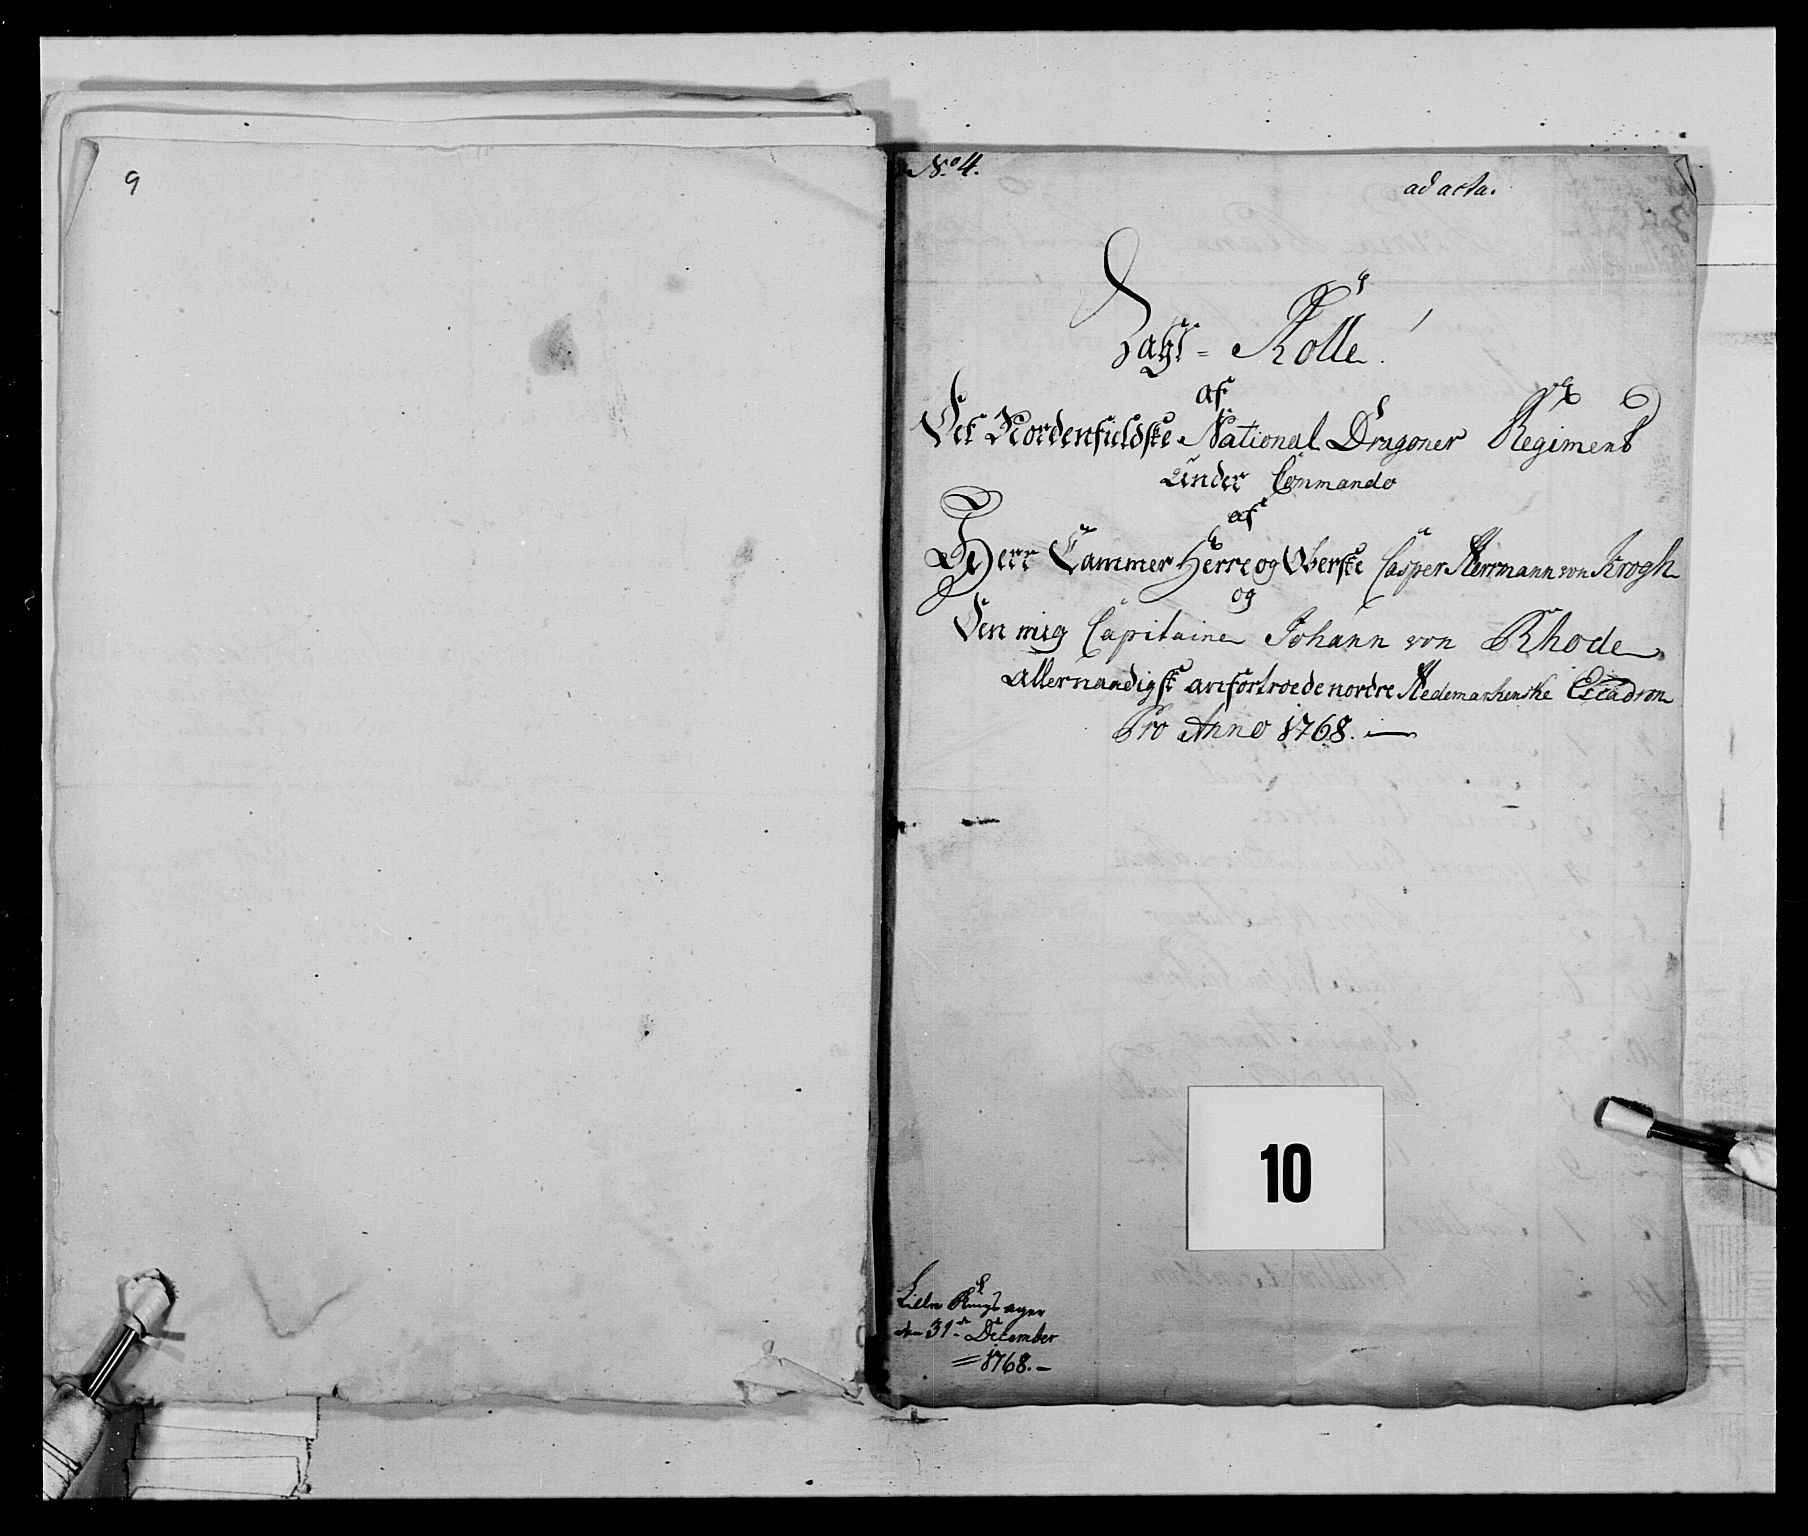 9
No 4.
ad acta.
Zahl = Rolle.
af
Det Nordenfieldske National Dragoner Regiment
Under Commando
af
Herr Cammer Herre og Oberste Casper Herrmann von Krogh
og
Den mig Capitaine Johann von Rhode
allernaadigst anfortroede nordre Hedemarkenske Escadron
Pro Anno 1768.
10
Lille Ringsager
den 31te December
= 1768. -